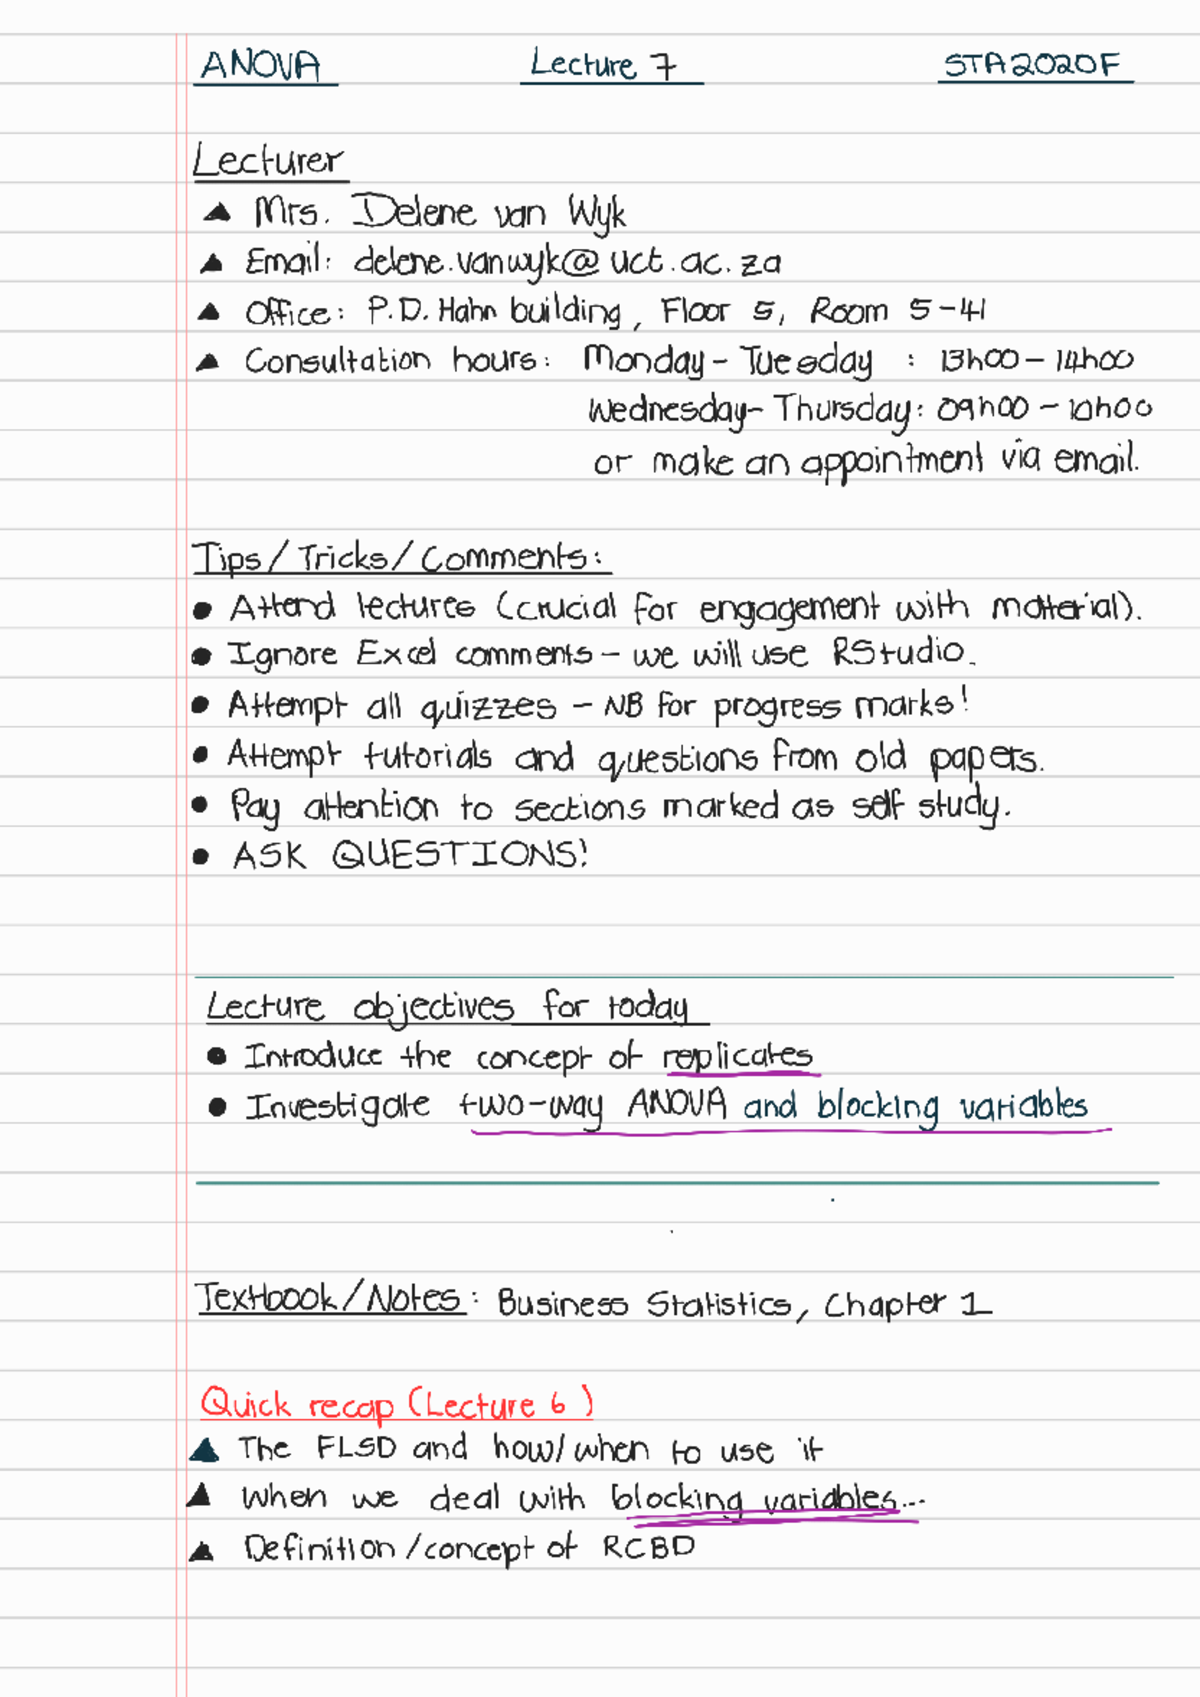 ANOVA Lecture 7 STA2020F
Lecturer
▲ Mrs. Delene van Wyk
▲ Email: delene.vanwyk@uct.ac.za
▲ Office: P.D. Hahn building, Floor 5, Room 5-41
▲ Consultation hours: Monday - Tuesday : 13h00 - 14h00
Wednesday - Thursday: 09h00 - 10h00
or make an appointment via email.
Tips/Tricks/Comments:
● Attend lectures (crucial for engagement with material).
● Ignore Excel comments - we will use RStudio.
● Attempt all quizzes - NB for progress marks!
● Attempt tutorials and questions from old papers.
● Pay attention to sections marked as self study.
● ASK QUESTIONS!
Lecture objectives for today
● Introduce the concept of replicates
● Investigate two-way ANOVA and blocking variables
Textbook/Notes: Business Statistics, Chapter 1
Quick recap (Lecture 6)
▲ The FLSD and how/when to use it
▲ When we deal with blocking variables...
▲ Definition/concept of RCBD